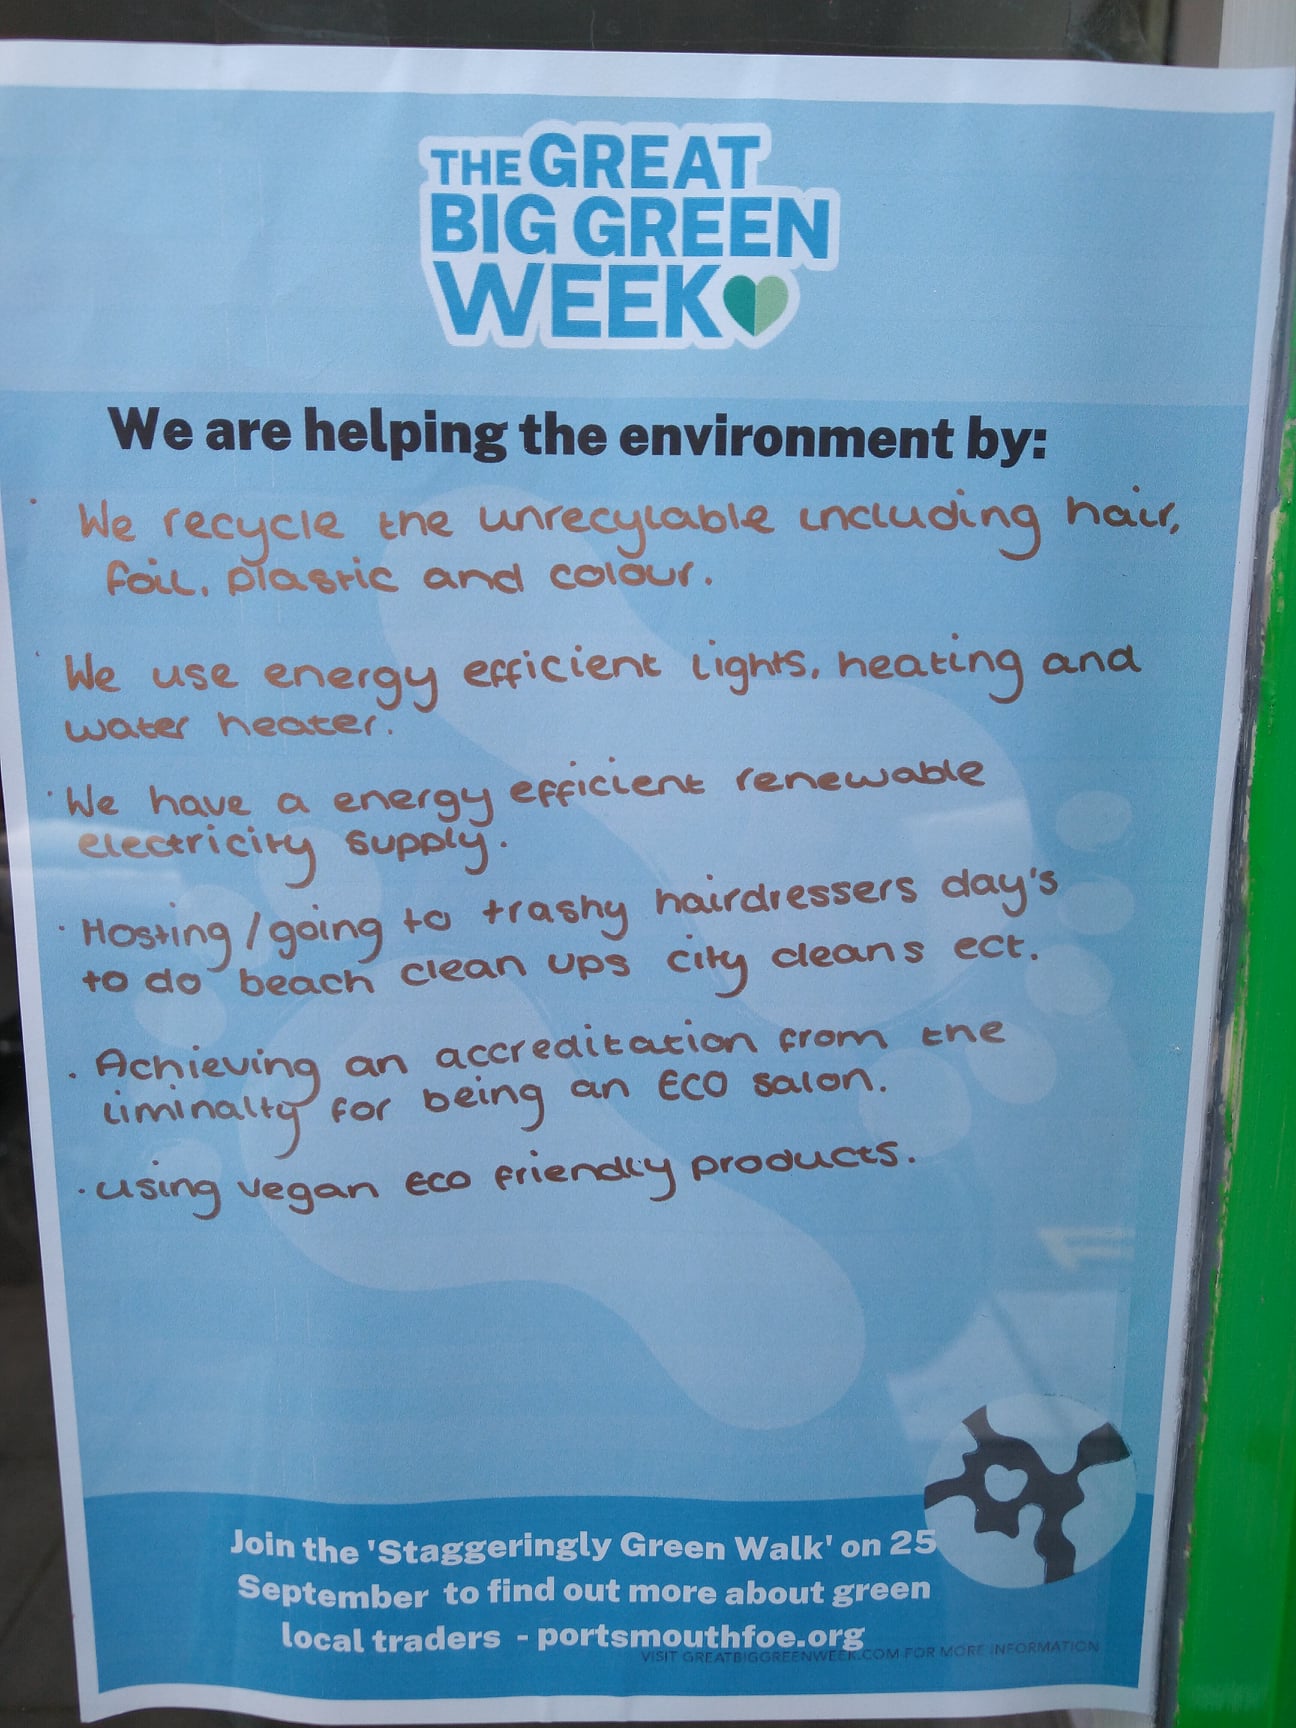 THE GREAT
BIG GREEN
WEEK
We are helping the environment by:
· We recycle the unrecylable including hair,
foil, plastic and colour.
· We use energy efficient lights, heating and
water heater.
· We have a energy efficient renewable
electricity supply.
· Hosting/going to trashy hairdressers day's
to do beach clean ups city cleans ect.
· Achieving an accreditation from the
liminalty for being an ECO salon.
· using vegan eco friendly products.
Join the 'Staggeringly Green Walk' on 25
September to find out more about green
local traders - portsmouthfoe.org
VISIT GREATBIGGREENWEEK.COM FOR MORE INFORMATION